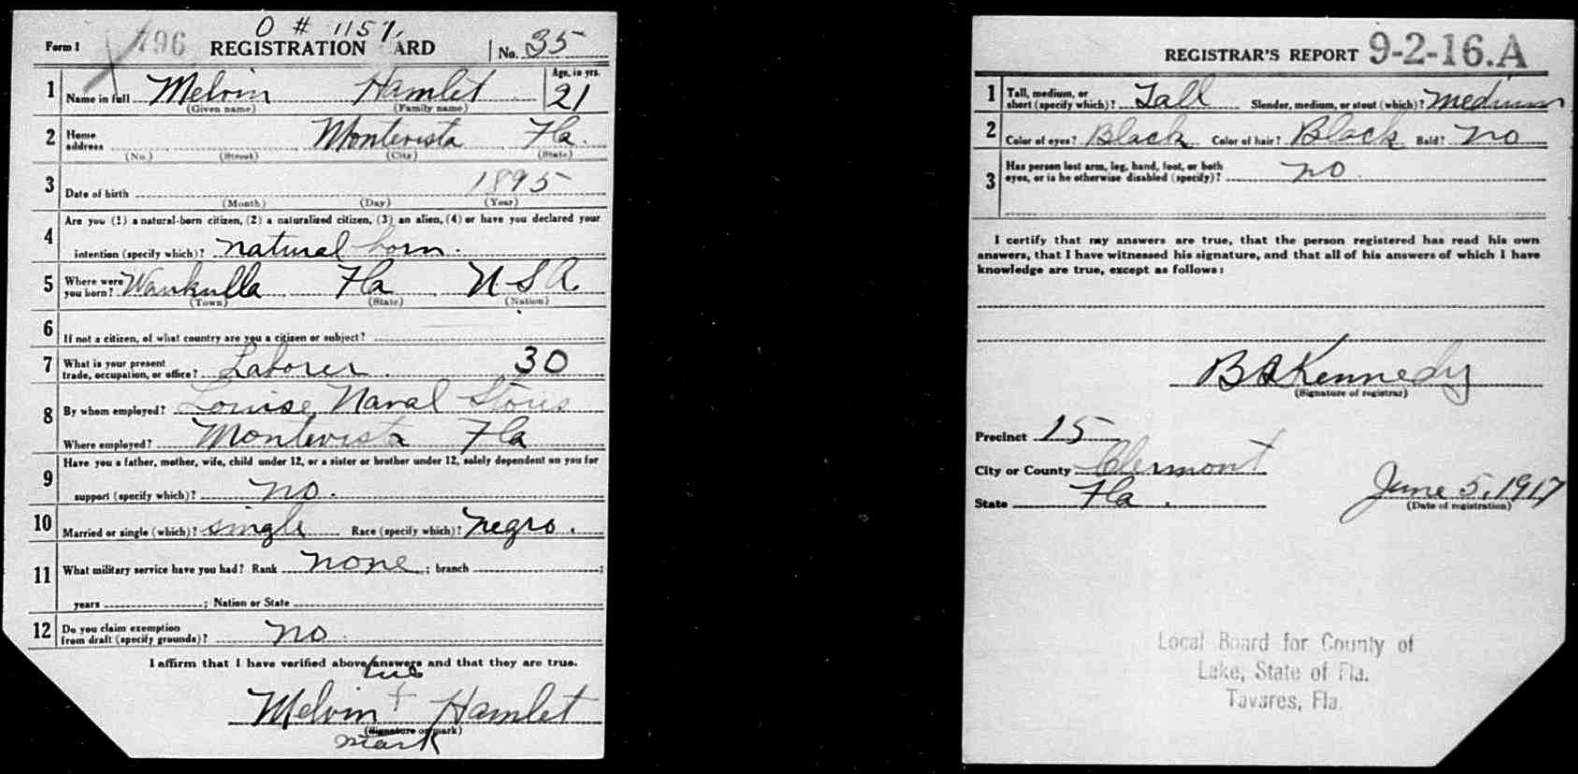 O # 1157,
Form 1 796 REGISTRATION ARD No. 35
1 Name in full Melvin Hamlet Age, in yrs. 21
(Given name) (Family name)
2 Home address Montevista Fla.
(No.) (Street) (City) (State)
3 Date of birth 1895
(Month) (Day) (Year)
4 Are you (1) a natural-born citizen, (2) a naturalized citizen, (3) an alien, (4) or have you declared your
intention (specify which)? natural born.
5 Where were you born? Wankulla Fla U S A
(Town) (State) (Nation)
6 If not a citizen, of what country are you a citizen or subject?
7 What is your present trade, occupation, or office? Laborer. 30
8 By whom employed? Louise Naval Stores
Where employed? Montevista Fla
9 Have you a father, mother, wife, child under 12, or a sister or brother under 12, solely dependent on you for
support (specify which)? no.
10 Married or single (which)? single Race (specify which)? negro.
11 What military service have you had? Rank none ; branch ;
years ; Nation or State
12 Do you claim exemption from draft (specify grounds)? no.
I affirm that I have verified above answers and that they are true.
his
Melvin + Hamlet
(Signature or mark)
mark
REGISTRAR'S REPORT 9-2-16.A
1 Tall, medium, or short (specify which)? Tall Slender, medium, or stout (which)? medium
2 Color of eyes? Black Color of hair? Black Bald? no
3 Has person lost arm, leg, hand, foot, or both
eyes, or is he otherwise disabled (specify)? no.
I certify that my answers are true, that the person registered has read his own
answers, that I have witnessed his signature, and that all of his answers of which I have
knowledge are true, except as follows:
Kennedy
(Signature of registrar)
Precinct 15
City or County Clermont
State Fla. June 5, 1917
(Date of registration)
Local Board for County of
Lake, State of Fla.
Tavares, Fla.